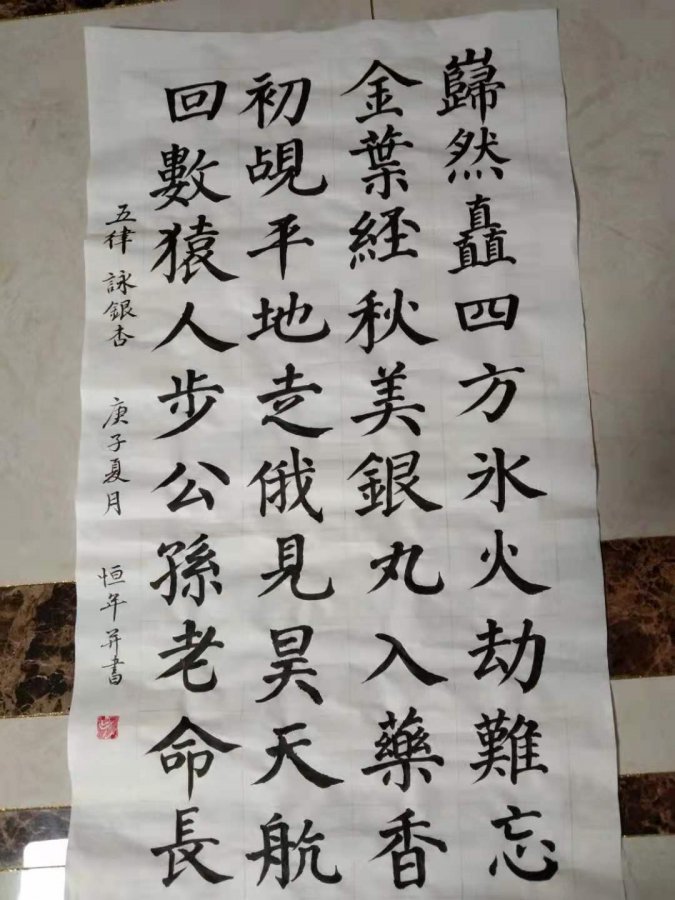 巋然矗四方氷火劫難忘
金葉經秋美銀丸入藥香
初覘平地走俄見昊天航
回數猿人步公孫老命長
五律 詠銀杏 庚子夏月 恒年并書